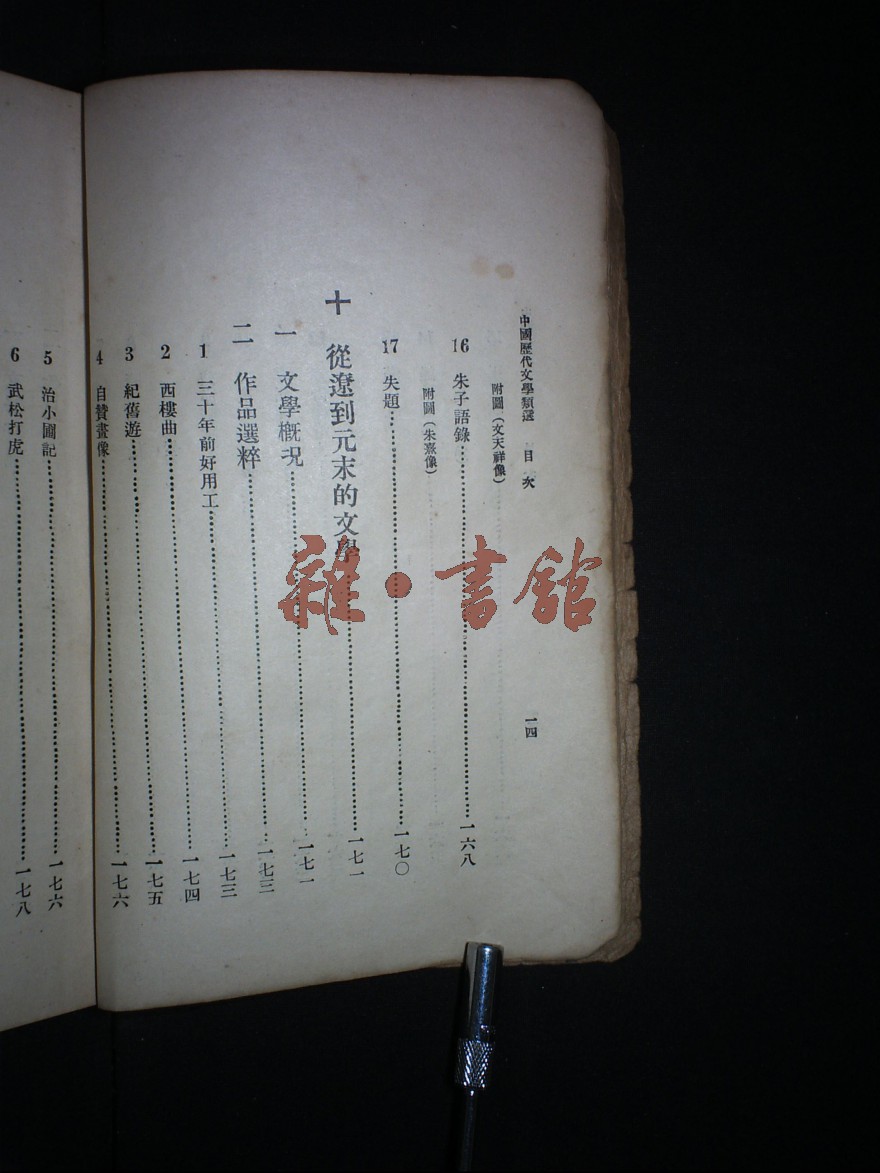 中國歷代文學類選 目次 一四
附圖(文天祥像)
16 朱子語錄 一六八
附圖(朱熹像)
17 失題 一七〇
十 從遼到元末的文學 一七一
一 文學概況 一七一
二 作品選粹 一七三
1 三十年前好用工 一七三
2 西樓曲 一七四
3 紀舊遊 一七五
4 自贊畫像 一七六
5 治小圃記 一七六
6 武松打虎 一七八
雜·書館